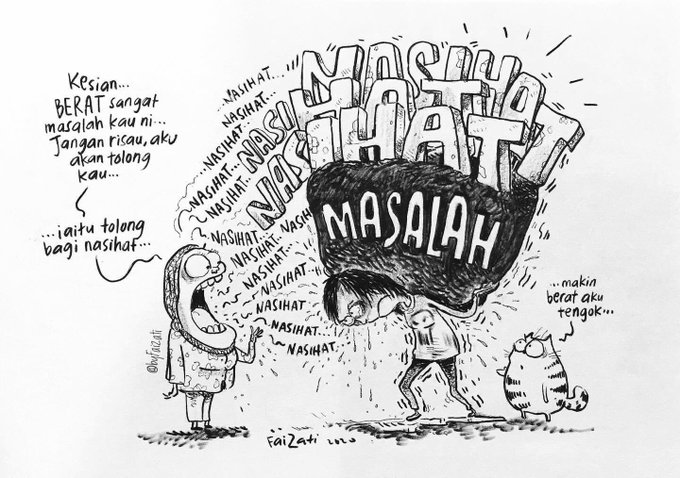 Kesian...
BERAT sangat
masalah kau ni...
Jangan risau, aku
akan tolong
kau...
...iaitu tolong
bagi nasihat...
NASIHAT...
NASIHAT...
NASIHAT...
NASIHAT...
NASIHAT...
NASIHAT...
NASIHAT...
NASIHAT...
NASIHAT...
NASIHAT...
NASIHAT...
NASIHAT...
NASIHAT...
NASIH
NASIHAT
NASIHAT
NASIHAT
MASALAH
...makin
berat aku
tengok...
@byfaizati
FaiZati 2020